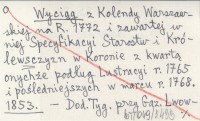 Wyciąg z Kolendy Warszaw-
skiej na R. 1772 i zawartej w
niej Specyfikacyi Starostw i Kró-
lewszczyzn w Koronie z kwartą
onychże podług Lustracyi r. 1765
i pośledniejszych w marcu r. 1768.
1853. — Dod. Tyg. przy Gaz. Lwow-